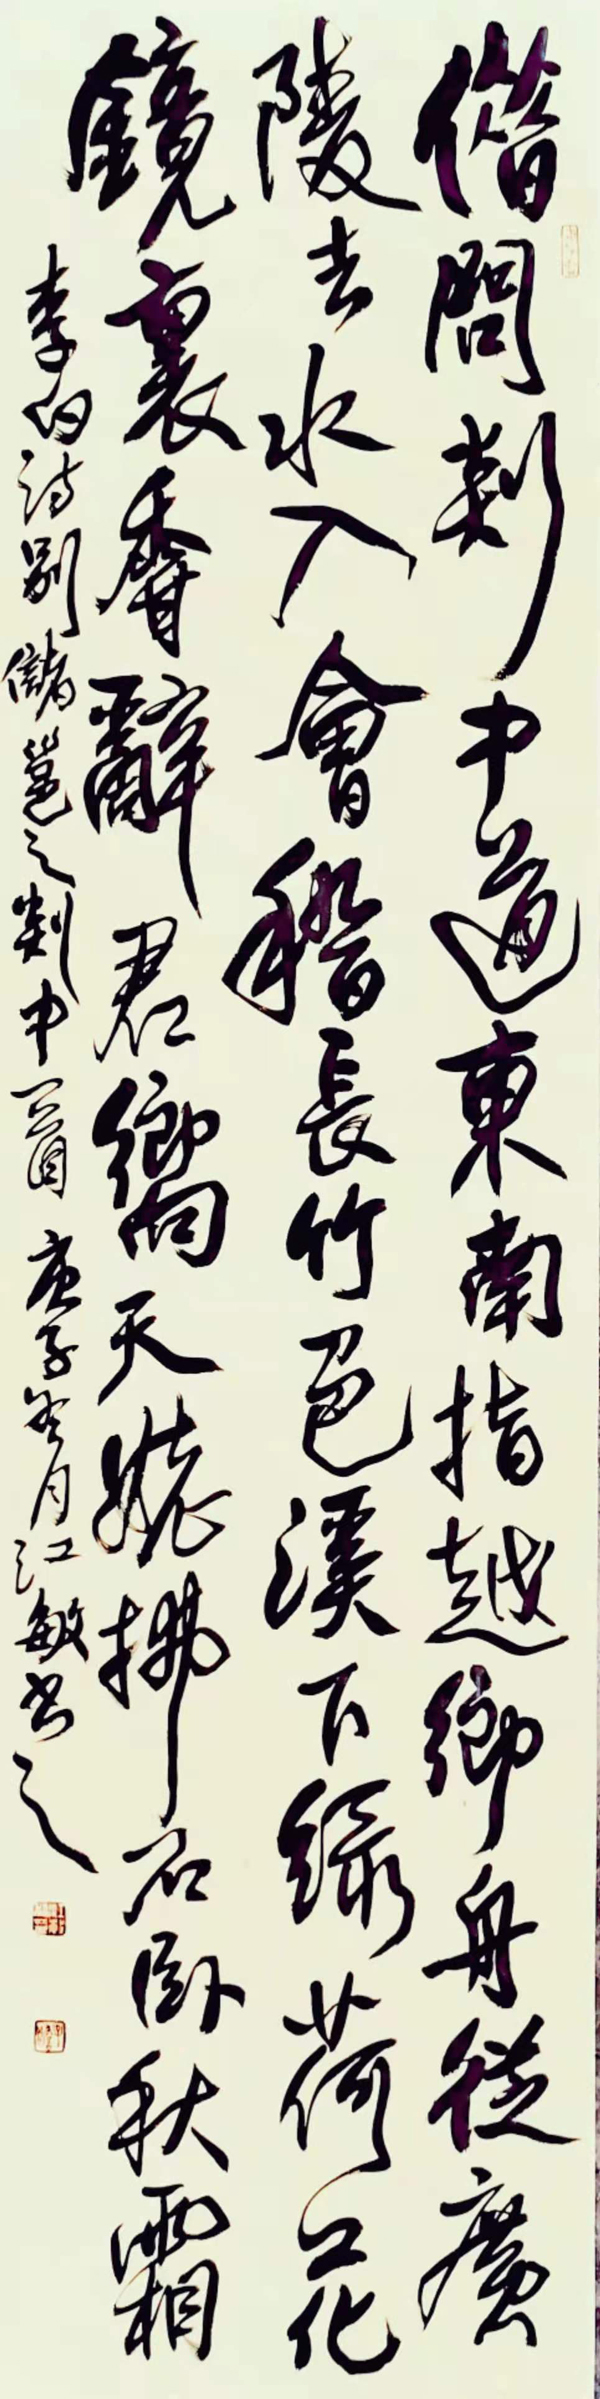 借問剡中道東南指越鄉舟從廣
陵去水入會稽長竹色溪下綠荷花
鏡裏香辭君嚮天姥拂石臥秋霜
李白詩別儲邕之剡中一首 庚子冬月江敏書之